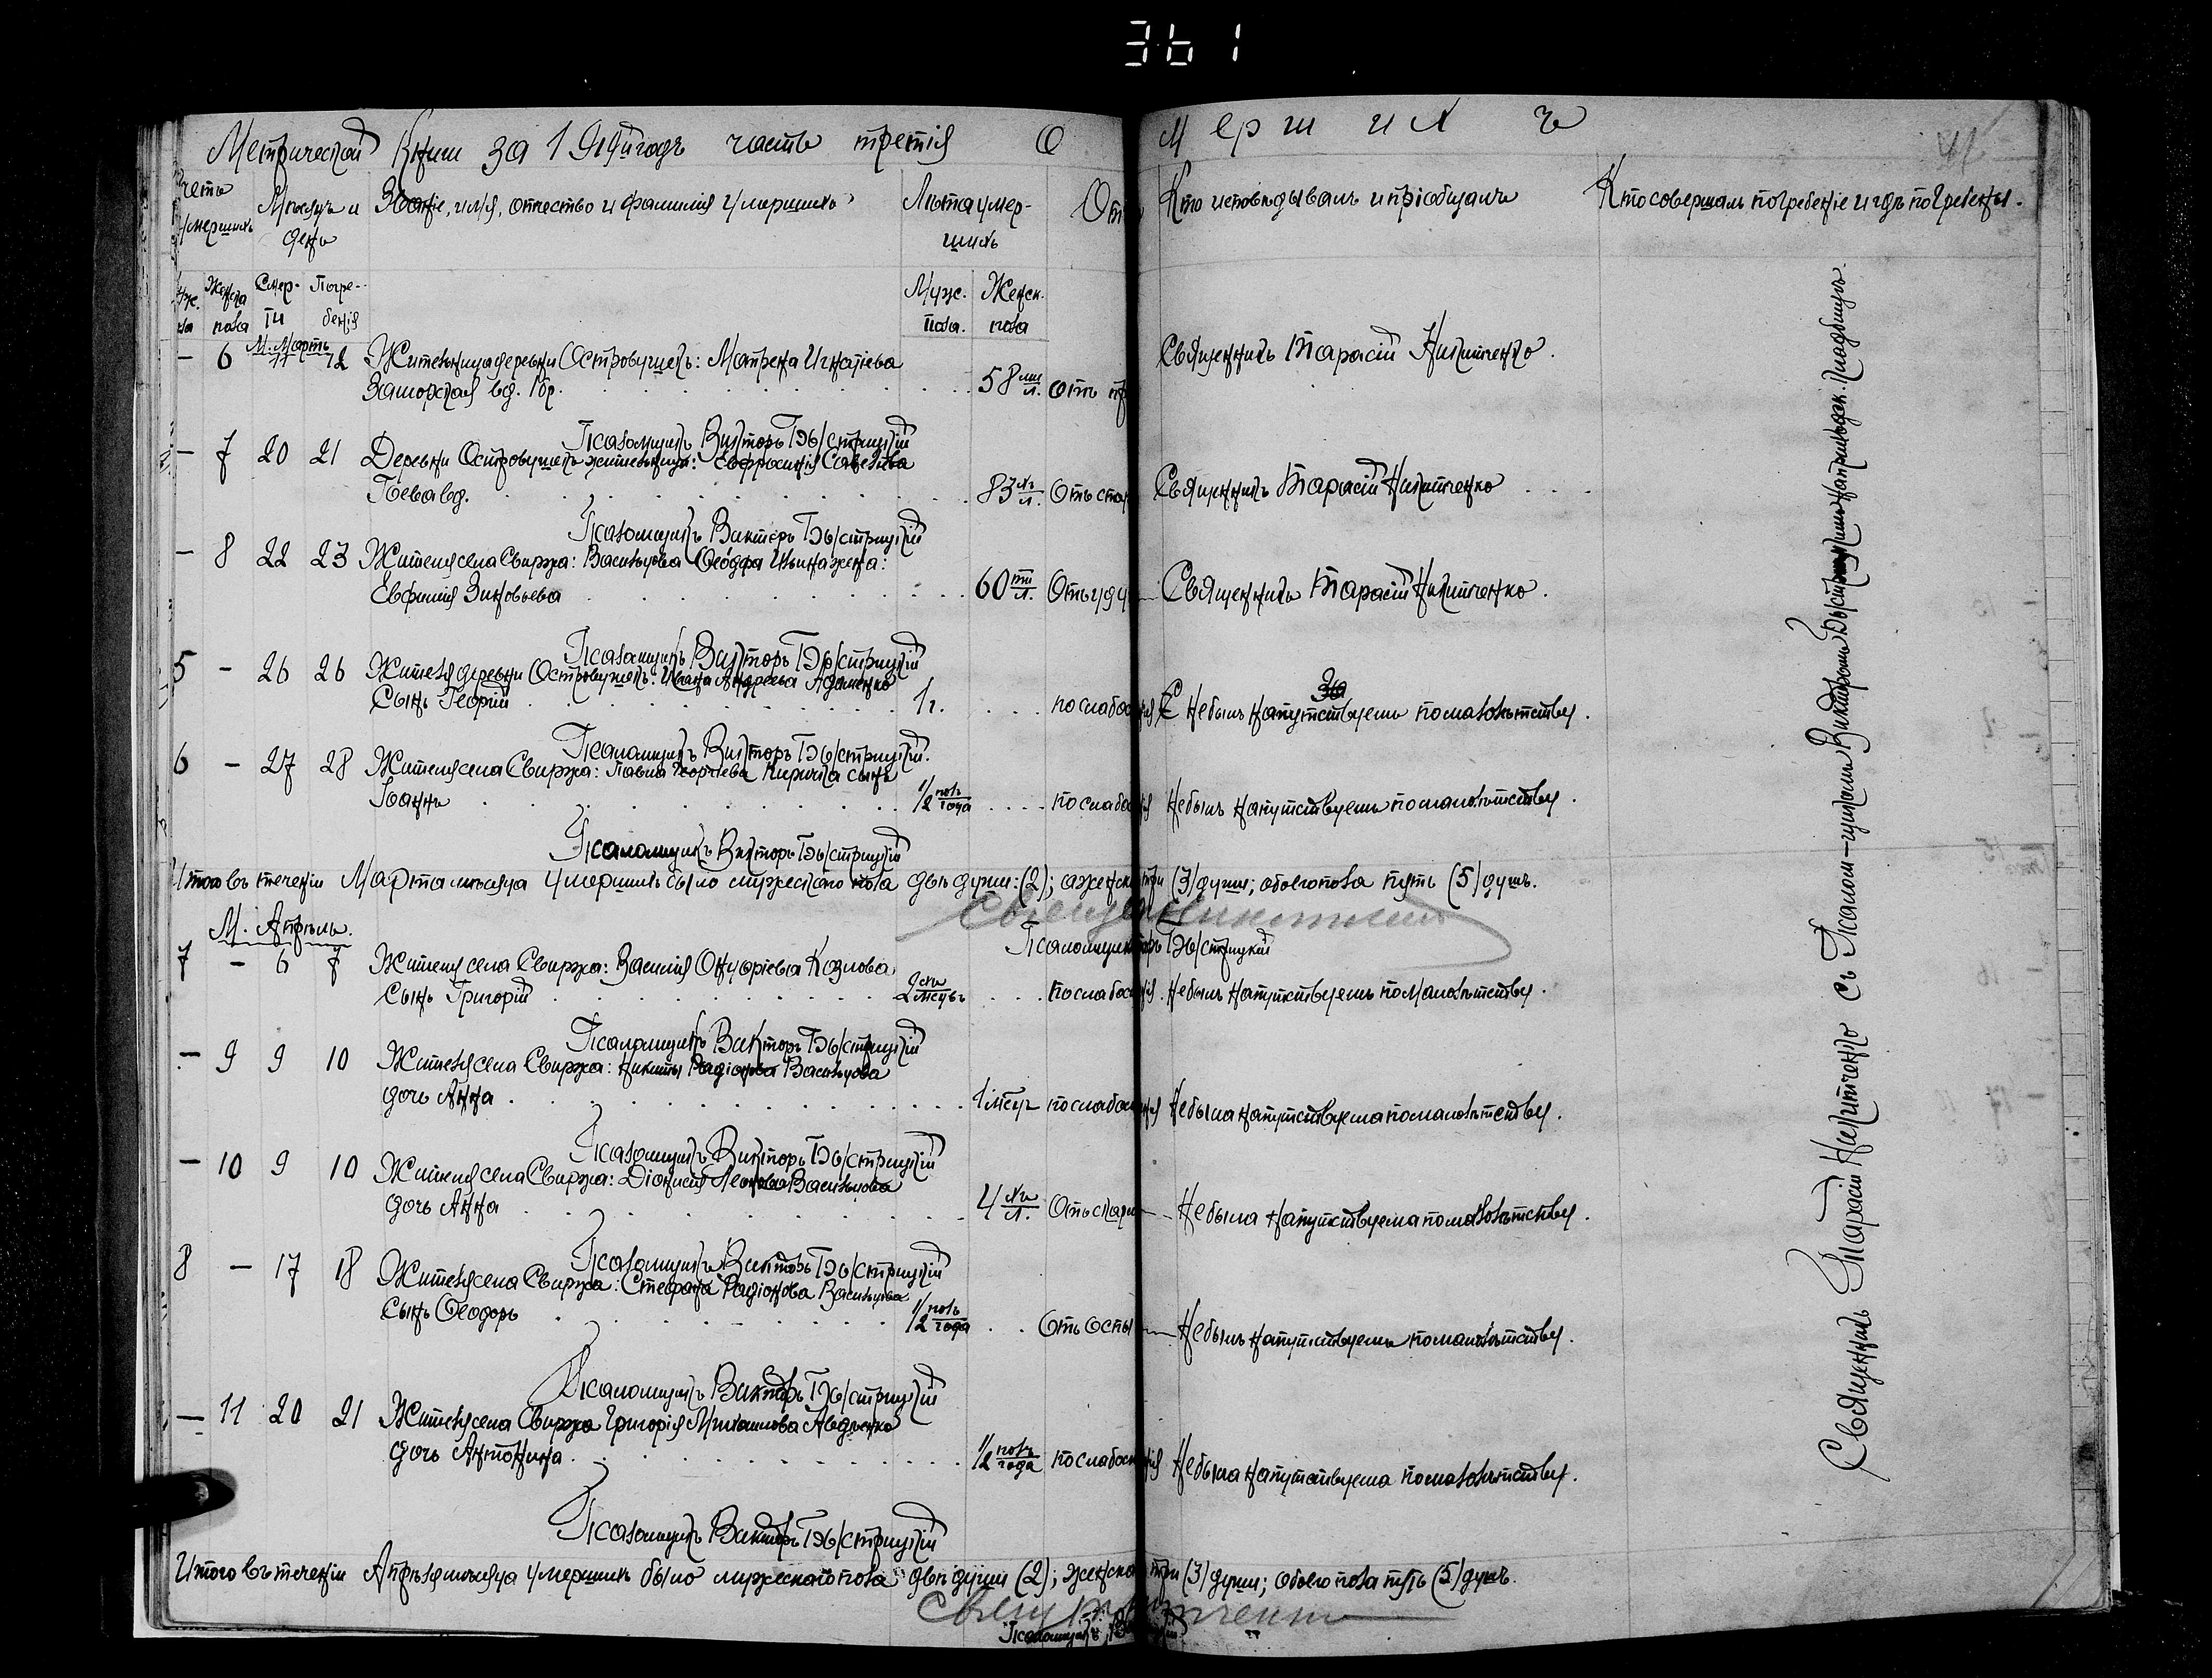 361
Метрической Книги за 1919й годъ часть третія О умершихъ
41
Счетъ умершихъ
Мѣсяцъ и день
Званіе, имя, отчество и фамилія умершихъ
Лѣта умершихъ
Отъ
Кто исповѣдывалъ и пріобщалъ
Кто совершалъ погребеніе и гдѣ погребены.
Муж. пола
Женска пола
Смерти
Погребенія
Муж. пола.
Женск. пола
М. Мартъ
— 6 11 12 Жительница деревни Островушекъ: Матрена Игнатіева
вд. 58 л. Отъ Священникъ Тарасій Никитченко.
Псаломщикъ Викторъ Быстрицкій
— 7 20 21 Деревни Островушекъ жительница: Евфросинія Савельева
вд. 83 л. Отъ стар Священникъ Тарасій Никитченко
Псаломщикъ Викторъ Быстрицкій
— 8 22 23 Жителя села Свиржа: Васильцова Ѳеодора Ильина жена:
Евфимія Зиновьева 60 ти л. Отъ уду Священникъ Тарасій Никитченко.
Псаломщикъ Викторъ Быстрицкій
5 — 26 26 Жителя деревни Островушекъ: Ивана Андреева Адаменко
Сынъ Георгій 1 г. по слабо Не былъ напутствуемъ по малолѣтству.
Псаломщикъ Викторъ Быстрицкій.
6 — 27 28 Жителя села Свиржа: Павла Георгіева Кирчика сынъ
Іоаннъ 1/2 полъ года по слаба Не былъ напутствуемъ по малолѣтству.
Псаломщикъ Викторъ Быстрицкій
Итого въ теченіи Марта мѣсяца умершихъ было мужескаго пола двѣ души: (2); а женск три (3) души; обоего пола пять (5) душъ.
Псаломщикъ Быстрицкій
М. Апрѣль.
7 — 6 7 Жителя села Свиржа: Василія Онуфріева Козлова
Сынъ Григорій 2 мсцъ по слабо Не былъ напутствуемъ по малолѣтству.
Псаломщикъ Викторъ Быстрицкій
— 9 9 10 Жителя села Свиржа: Никиты Радіонова Васильцова
дочь Анна 1 мсцъ по слаба Не была напутствуема по малолѣтству.
Псаломщикъ Викторъ Быстрицкій
— 10 9 10 Жителя села Свиржа: Діонисія Леонова Васильцова
дочь Анна 4 л. Отъ скар Не была напутствуема по малолѣтству.
Псаломщикъ Викторъ Быстрицкій
8 — 17 18 Жителя села Свиржа: Стефана Радіонова Васильцова
Сынъ Ѳеодоръ 1/2 полъ года Отъ осп Не былъ напутствуемъ по малолѣтству.
Псаломщикъ Викторъ Быстрицкій
— 11 20 21 Жителя села Свиржа Григорія Михаилова Авдѣенко
дочь Антонина 1/2 полъ года по слабо Не была напутствуема по малолѣтству.
Псаломщикъ Викторъ Быстрицкій
Итого въ теченіи Апрѣля мѣсяца умершихъ было мужескаго пола двѣ души (2); женско три (3) души; обоего пола пять (5) душъ.
Псаломщикъ
Священникъ Тарасій Никитченко съ Псаломщикомъ Викторомъ Быстрицкимъ на приходск. кладбищѣ.